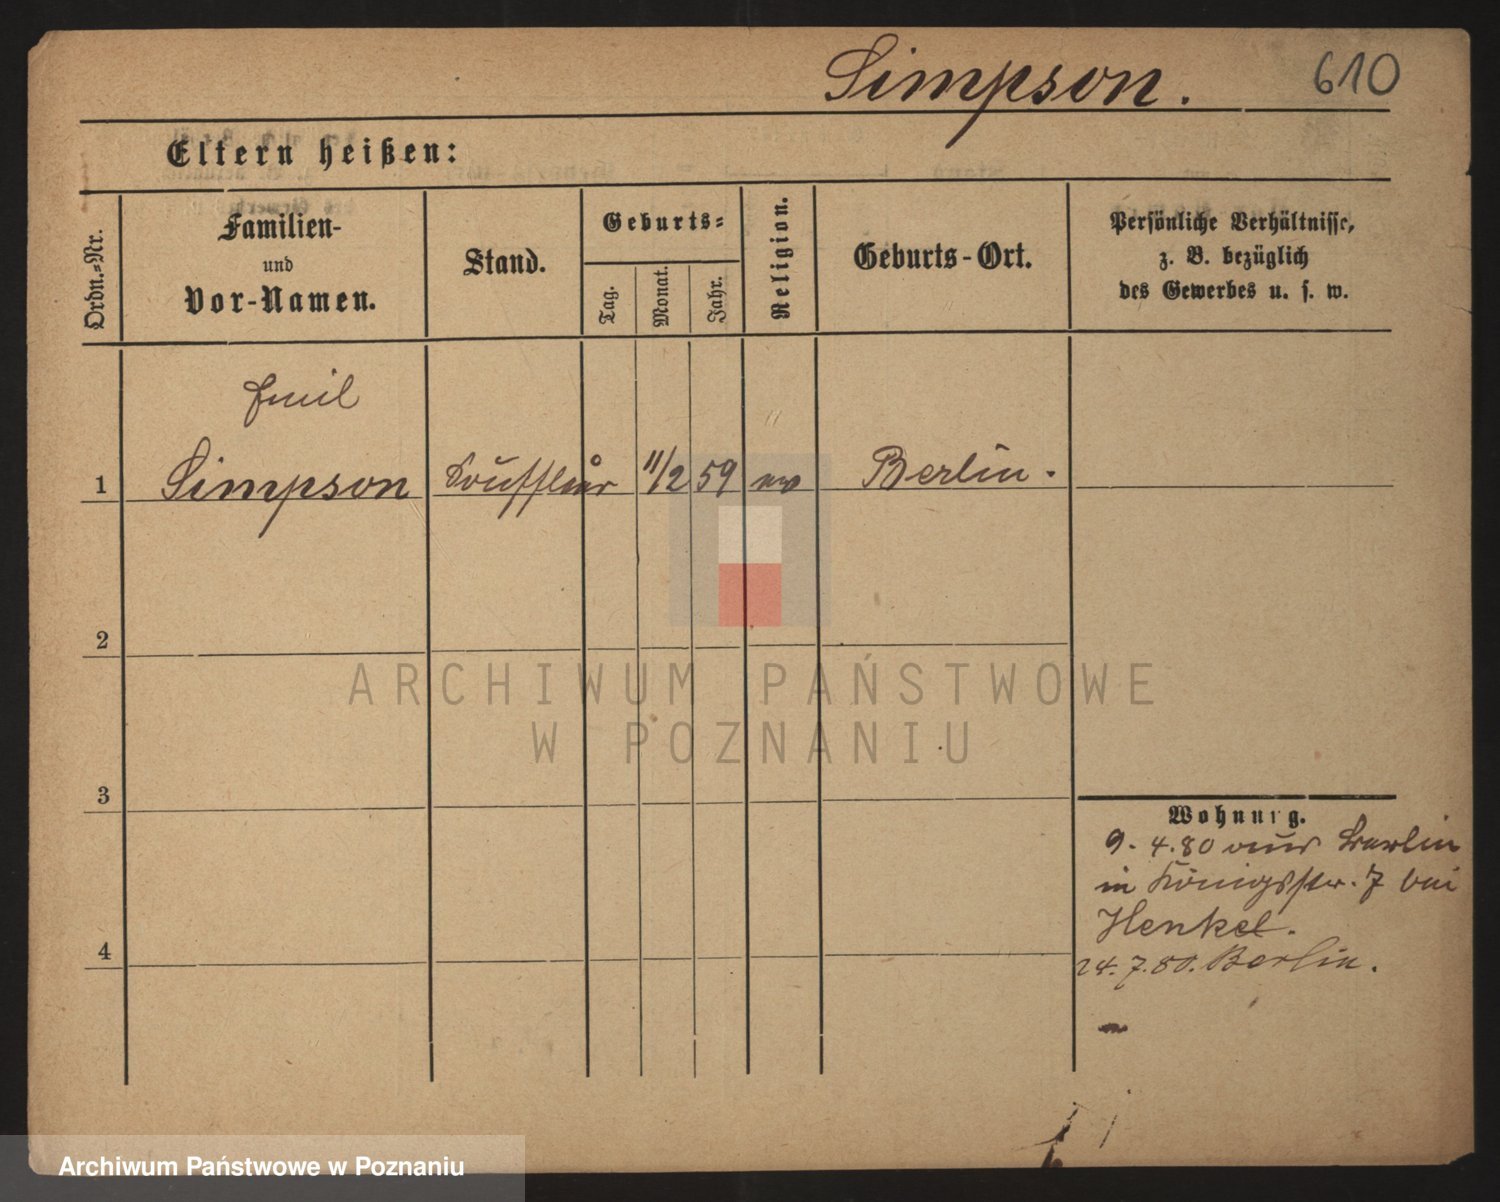 Simpson. 610
Eltern heißen:
Ordn.-Nr.
Familien-
und
Vor-Namen.
Stand.
Geburts-
Tag.
Monat.
Jahr.
Religion.
Geburts-Ort.
Persönliche Verhältnisse,
z. B. bezüglich
des Gewerbes u. s. w.
Emil
1 Simpson Souffleur 11/2 59 ev Berlin.
2
ARCHIWUM PAŃSTWOWE
W POZNANIU
3
Wohnung.
9. 4. 80 aus Berlin
in Königsstr. 7 bei
Henkel.
4
24. 7. 80. Berlin.
Archiwum Państwowe w Poznaniu